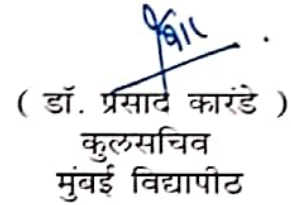 ( डॉ. प्रसाद कारंडे )
कुलसचिव
मुंबई विद्यापीठ